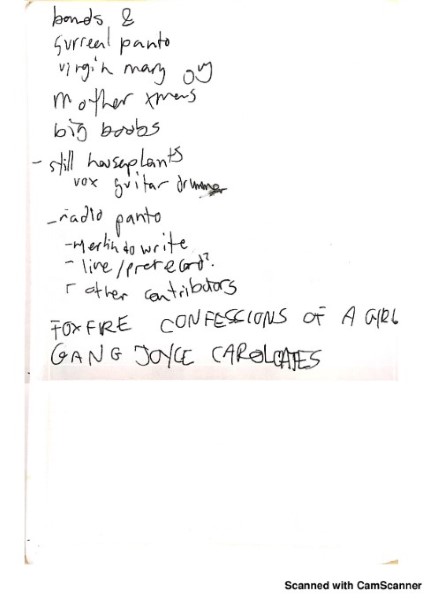 bands &
surreal panto
virgin mary
mother xmas
big boobs
- still houseplants
vox guitar drummer
- radio panto
- Merlin to write
- live/prerecord?
- other contributors
FOXFIRE CONFESSIONS OF A GIRL
GANG JOYCE CAROL OATES
Scanned with CamScanner